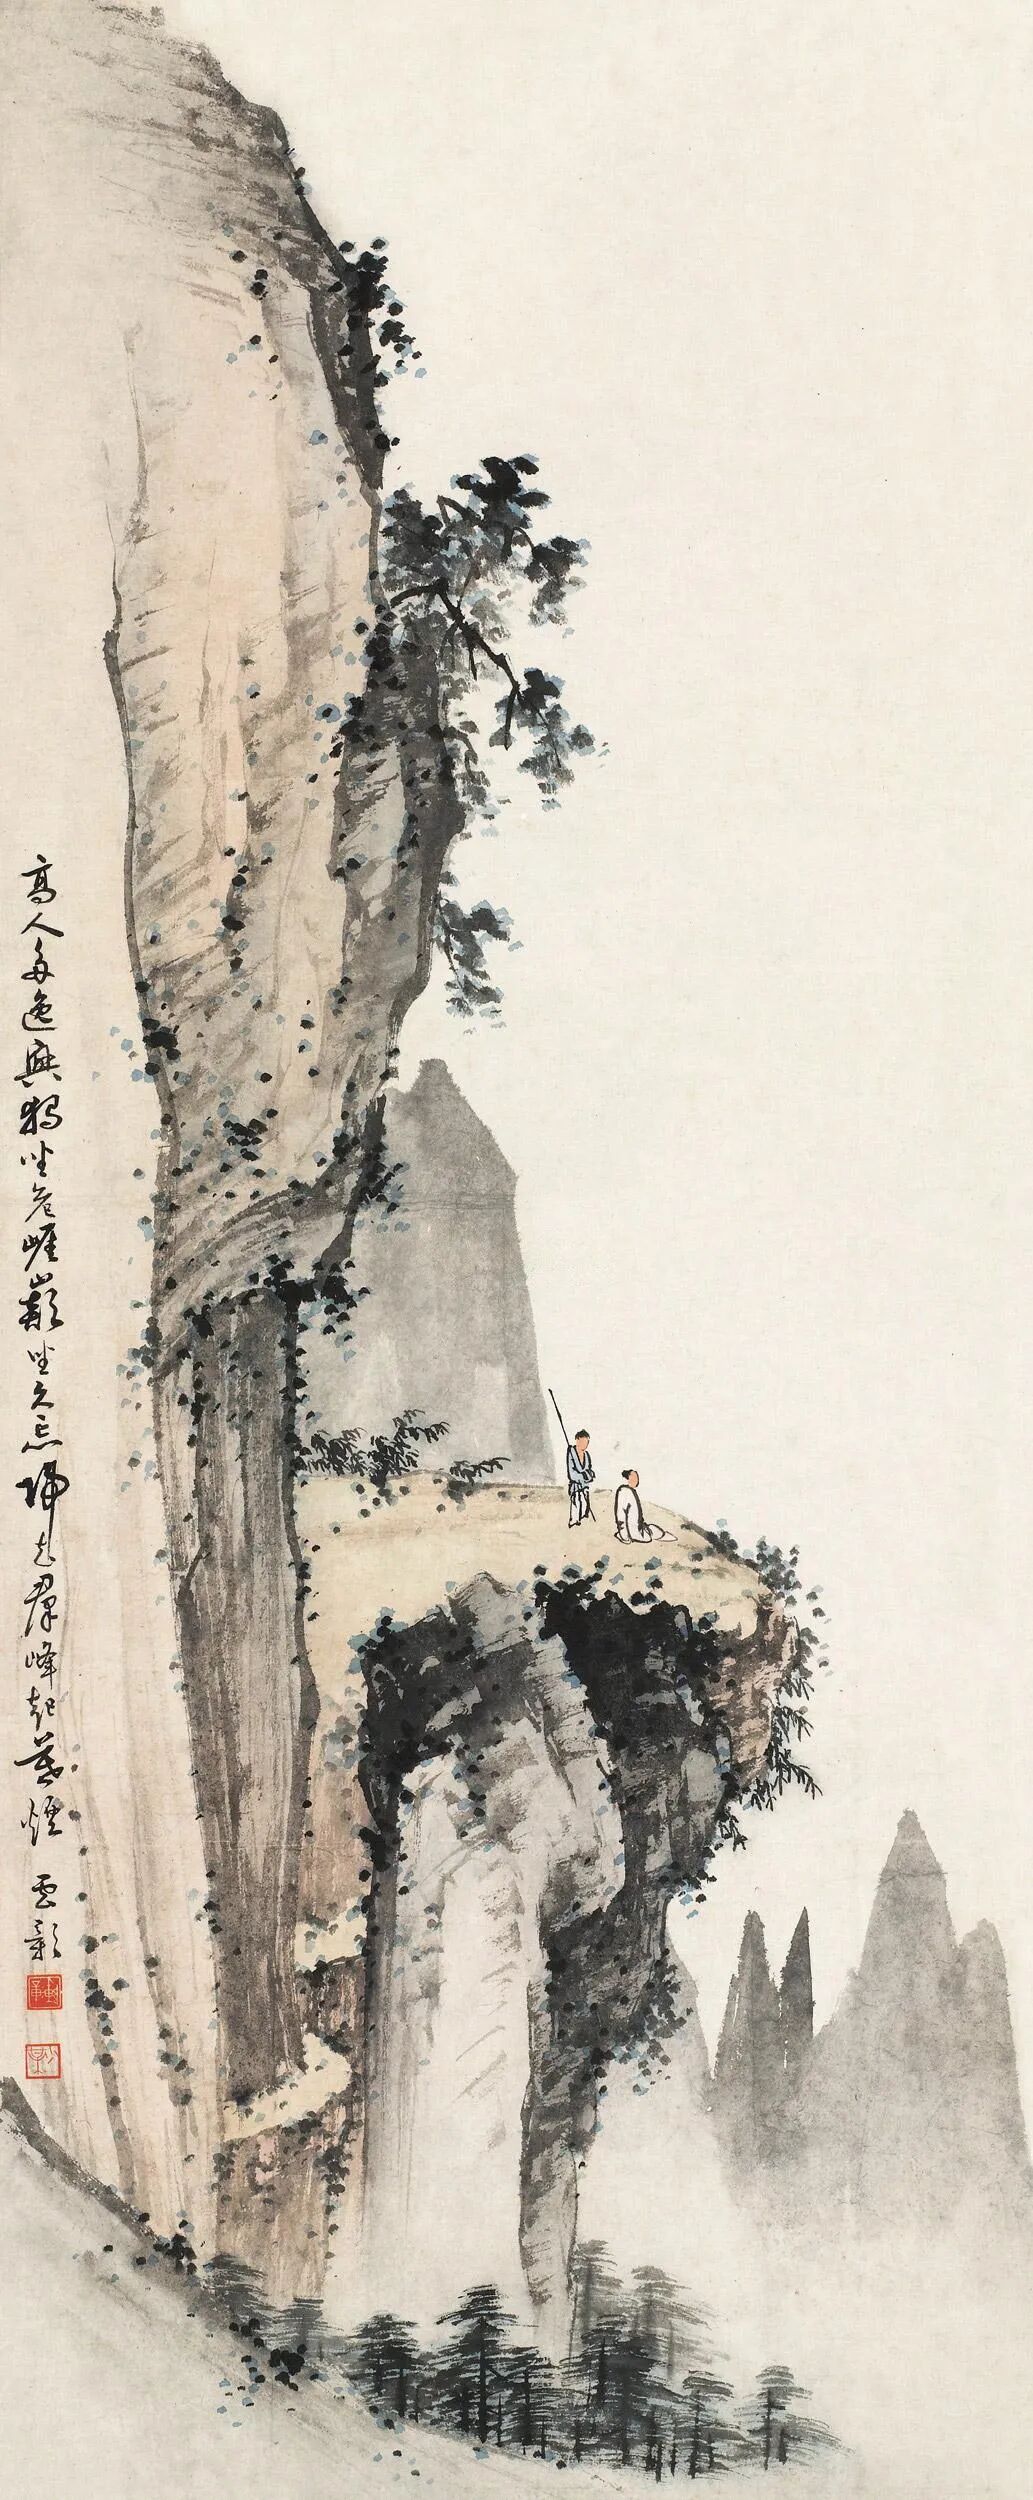 高人多逸興獨坐危崖巔坐久忘歸去羣峰起暮煙
雲彰